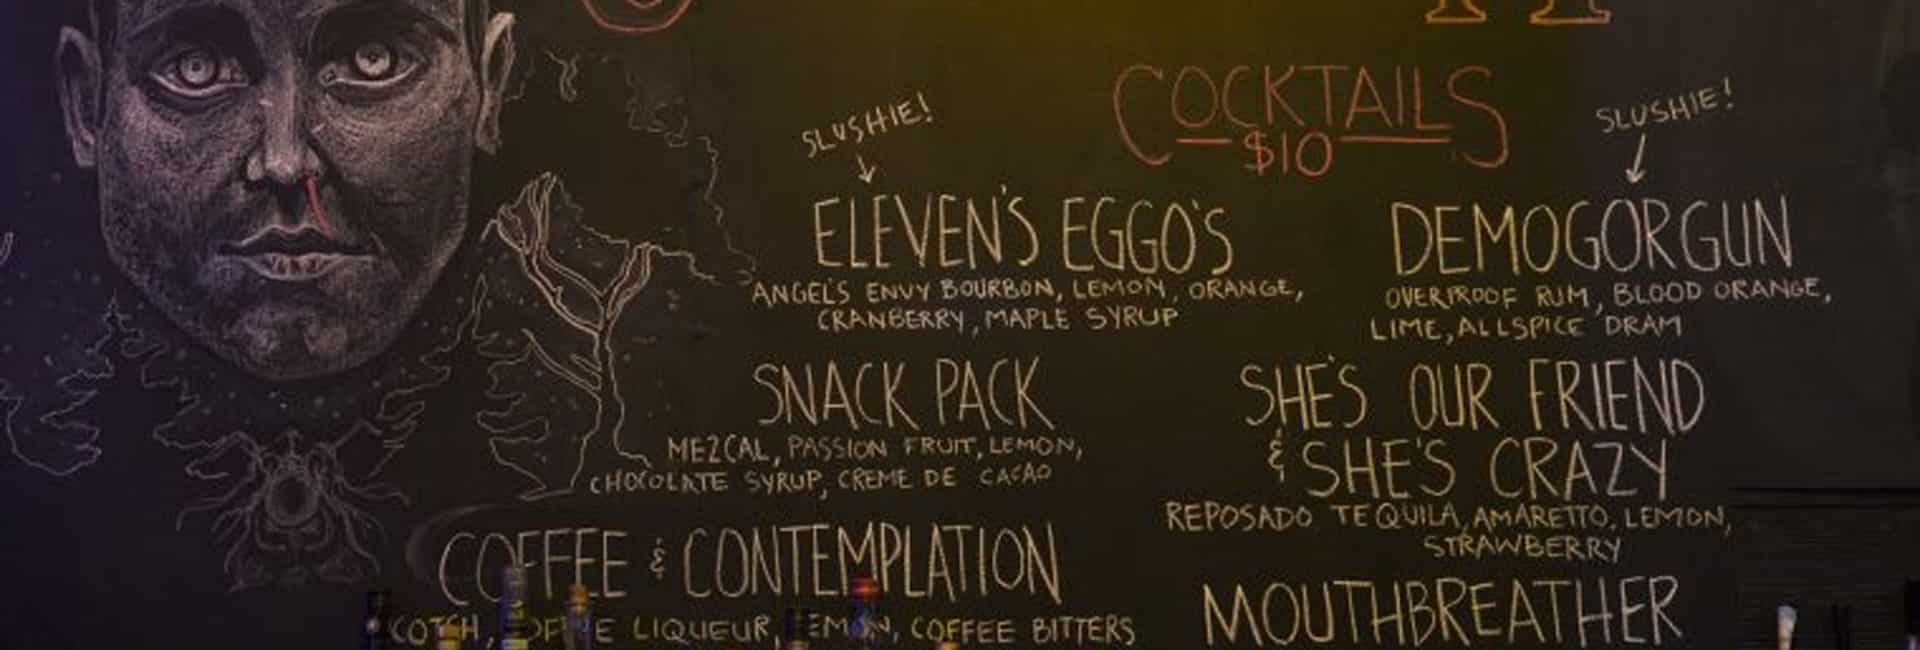 COCKTAILS
$10
SLUSHIE!
ELEVEN'S EGGO'S
ANGEL'S ENVY BOURBON, LEMON, ORANGE,
CRANBERRY, MAPLE SYRUP
SNACK PACK
MEZCAL, PASSION FRUIT, LEMON,
CHOCOLATE SYRUP, CREME DE CACAO
COFFEE & CONTEMPLATION
LIQUEUR, COFFEE BITTERS
SLUSHIE!
DEMOGORGUN
OVERPROOF RUM, BLOOD ORANGE,
LIME, ALLSPICE DRAM
SHE'S OUR FRIEND
& SHE'S CRAZY
REPOSADO TEQUILA, AMARETTO, LEMON,
STRAWBERRY
MOUTHBREATHER